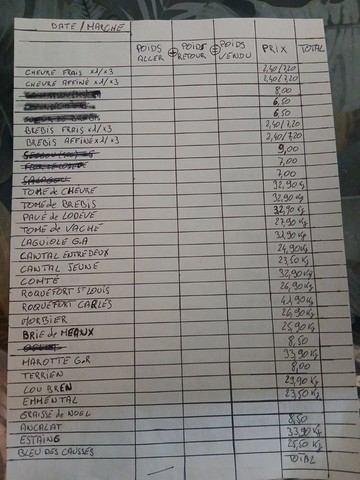 DATE / MARCHE
POIDS ALLER + POIDS RETOUR = POIDS VENDU PRIX TOTAL
CHEVRE FRAIS x1/x3 2,40/7,20
CHEVRE AFFINÉ x1/x3 2,40/7,20
8,00
6,50
6,50
BREBIS FRAIS x1/x3 2,40/7,20
BREBIS AFFINE x1/x3 2,40/7,20
9,00
7,00
SALAGOU 7,00
TOME de CHÈVRE 32,90 Kg
TOME de BREBIS 32,90 Kg
PAVÉ de LODÈVE 32,90 Kg
TOME de VACHE 27,90 Kg
LAGUIOLE 31,90 Kg
CANTAL ENTREDEUX 24,90 Kg
CANTAL JEUNE 23,50 Kg
COMTÉ 32,90 Kg
ROQUEFORT St LOUIS 26,90 Kg
ROQUEFORT CARLES 41,90 Kg
MORBIER 26,90 Kg
BRIE de MEAUX 25,90 Kg
8,50
MAROTTE 33,90 Kg
TERRIEN 8,00
LOU BREN 29,90 Kg
EMMENTAL 23,50 Kg
GRAISSE de NOEL
ANCALAT 8,50
ESTAING 33,90 Kg
BLEU DES CAUSSES 25,50 Kg
TOTAL